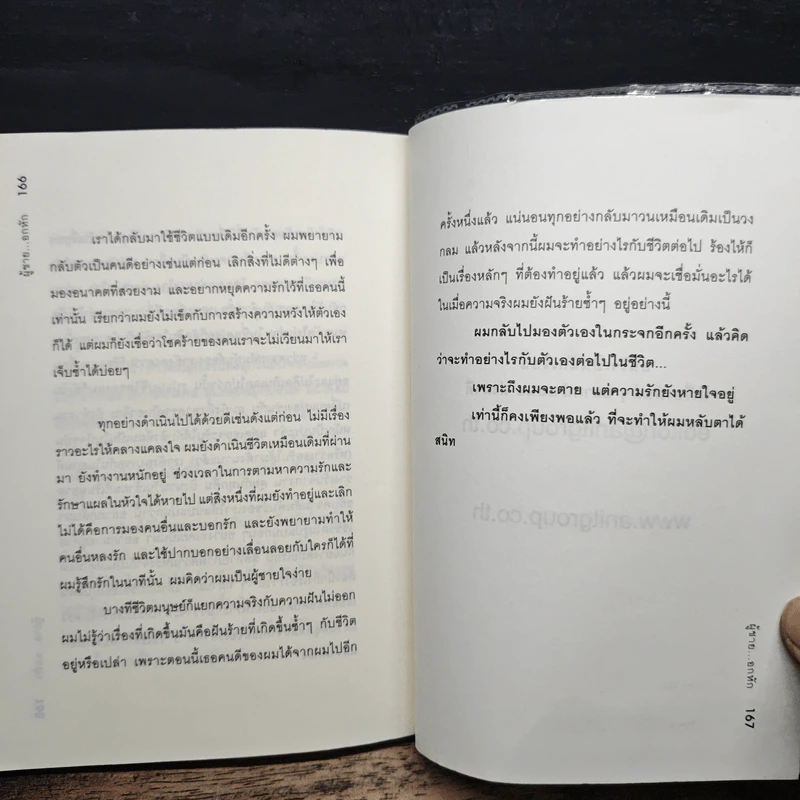 166
ผู้ชาย...อกหัก
เราได้กลับมาใช้ชีวิตแบบเดิมอีกครั้ง ผมพยายาม
กลับตัวเป็นคนดีอย่างเช่นแต่ก่อน เลิกสิ่งที่ไม่ดีต่างๆ เพื่อ
มองอนาคตที่สวยงาม และอยากหยุดความรักไว้ที่เธอคนนี้
เท่านั้น เรียกว่าผมยังไม่เข็ดกับการสร้างความหวังให้ตัวเอง
ก็ได้ แต่ผมก็ยังเชื่อว่าโชคร้ายของคนเราจะไม่เวียนมาให้เรา
เจ็บช้ำได้บ่อยๆ
ทุกอย่างดำเนินไปได้ด้วยดีเช่นดังแต่ก่อน ไม่มีเรื่อง
ราวอะไรให้คลางแคลงใจ ผมยังดำเนินชีวิตเหมือนเดิมที่ผ่าน
มา ยังทำงานหนักอยู่ ช่วงเวลาในการตามหาความรักและ
รักษาแผลในหัวใจได้หายไป แต่สิ่งหนึ่งที่ผมยังทำอยู่และเลิก
ไม่ได้คือการมองคนอื่นและบอกรัก และยังพยายามทำให้
คนอื่นหลงรัก และใช้ปากบอกอย่างเลื่อนลอยกับใครก็ได้ที่
ผมรู้สึกรักในนาทีนั้น ผมคิดว่าผมเป็นผู้ชายใจง่าย
บางทีชีวิตมนุษย์ก็แยกความจริงกับความฝันไม่ออก
ผมไม่รู้ว่าเรื่องที่เกิดขึ้นมันคือฝันร้ายที่เกิดขึ้นซ้ำๆ กับชีวิต
อยู่หรือเปล่า เพราะตอนนี้เธอคนดีของผมได้จากผมไปอีก
ครั้งหนึ่งแล้ว แน่นอนทุกอย่างกลับมาวนเหมือนเดิมเป็นวง
กลม แล้วหลังจากนี้ผมจะทำอย่างไรกับชีวิตต่อไป ร้องไห้ก็
เป็นเรื่องหลักๆ ที่ต้องทำอยู่แล้ว แล้วผมจะเชื่อมั่นอะไรได้
ในเมื่อความจริงผมยังฝันร้ายซ้ำๆ อยู่อย่างนี้
ผมกลับไปมองตัวเองในกระจกอีกครั้ง แล้วคิด
ว่าจะทำอย่างไรกับตัวเองต่อไปในชีวิต...
เพราะถึงผมจะตาย แต่ความรักยังหายใจอยู่
เท่านี้ก็คงเพียงพอแล้ว ที่จะทำให้ผมหลับตาได้
สนิท
www.anitgroup.co.th
ผู้ชาย...อกหัก
167